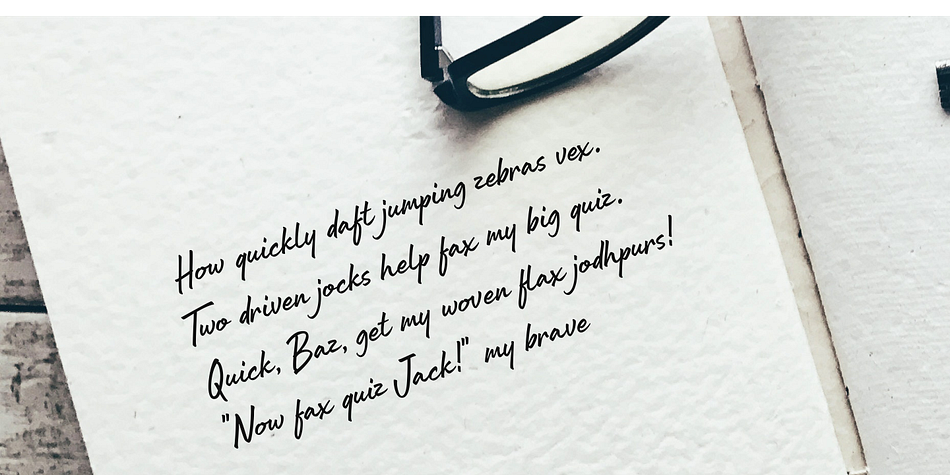 How quickly daft jumping zebras vex.
Two driven jocks help fax my big quiz.
Quick, Baz, get my woven flax jodhpurs!
"Now fax quiz Jack!" my brave